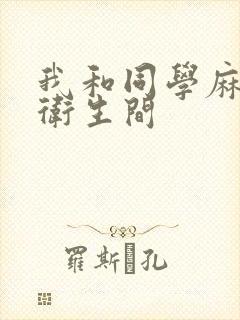 我和同學麻
衛生間
羅斯孔
HANDSON